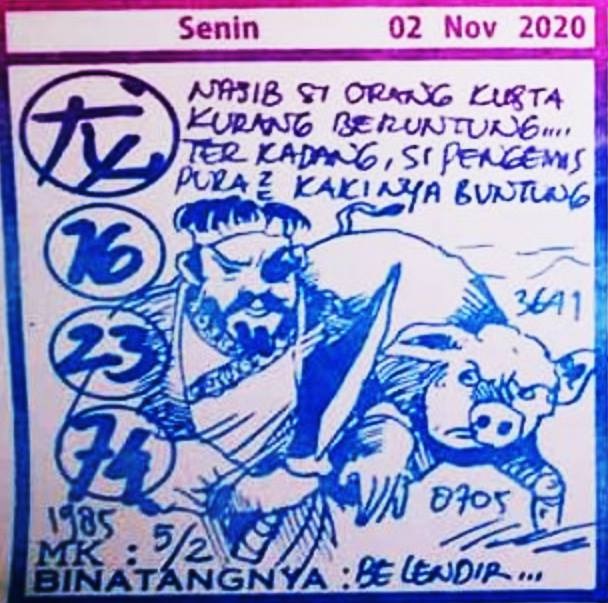 Senin 02 Nov 2020
龙
NAJIB SI ORANG KUSTA
KURANG BERUNTUNG....
TERKADANG, SI PENGEMIS
PURA2 KAKINYA BUNTUNG
76
23
74
3641
0705
1985
MK : 5/2
BINATANGNYA : BELENDIR...